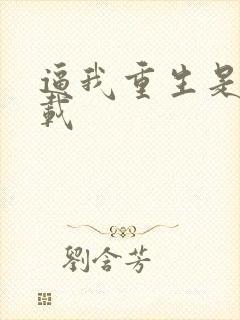 逼我重生是
載
劉含芳